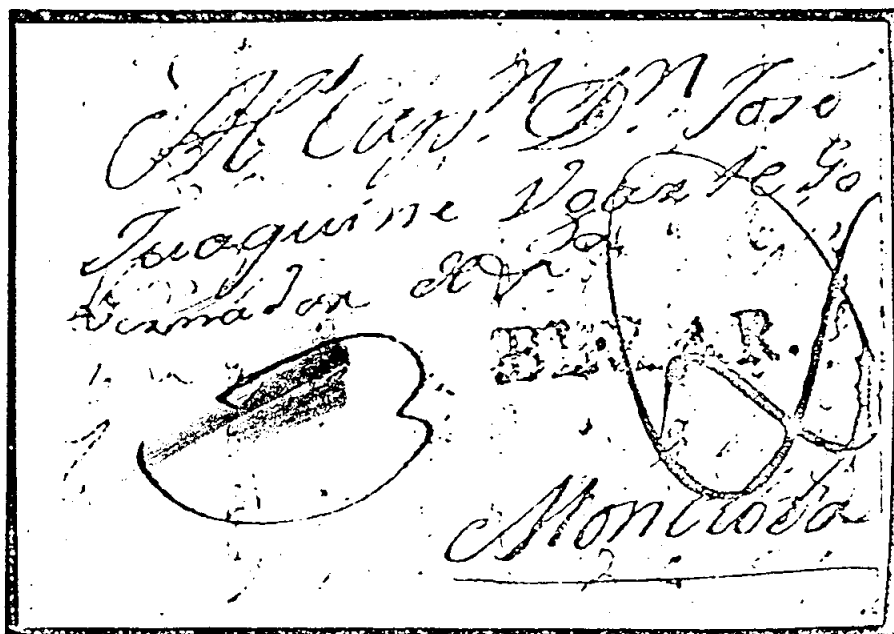 Al Cap.n D.n José
Juaquine Vgarte Go
vernador de
BEXAR.
3
Monclova